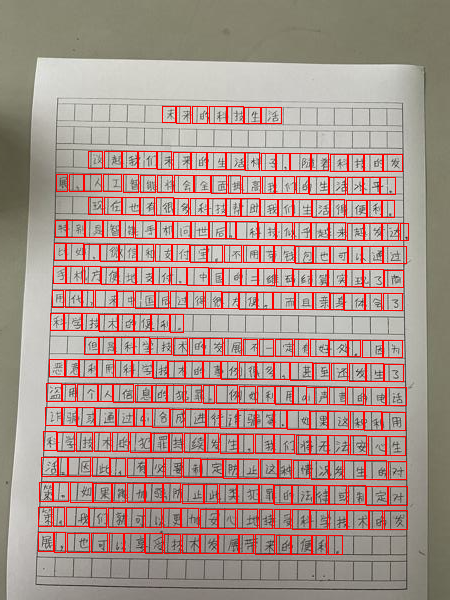 未来的科技生活
说起我们未来的生活样子。随着科技的发
展。人工智能将会全面提高我们的生活水平。
现在也有很多科技帮助我们生活得便利。
特别是智能手机问世后。科技似乎越来越发达。
比如。微信和支付宝。不用带钱包也可以通过
手机方便地支付。中国的二维码结算实现了商
用化。来中国后过得很方便。而且亲身体会了
科学技术的便利。
但是科学技术的发展不一定有好处。因为
恶意利用科学技术的事件很多。甚至还发生了
盗用个人信息的犯罪。例如利用AI声音的电话
诈骗或通过AI合成进行诈骗等。如果这种利用
科学技术的犯罪持续发生。我们将无法安心生
活。因此。有必要制定防止这种情况发生的对
策。如果能加强防止此类犯罪的法律或制定对
策。我们就可以更加安心地接受科学技术的发
展。也可以享受技术发展带来的便利。